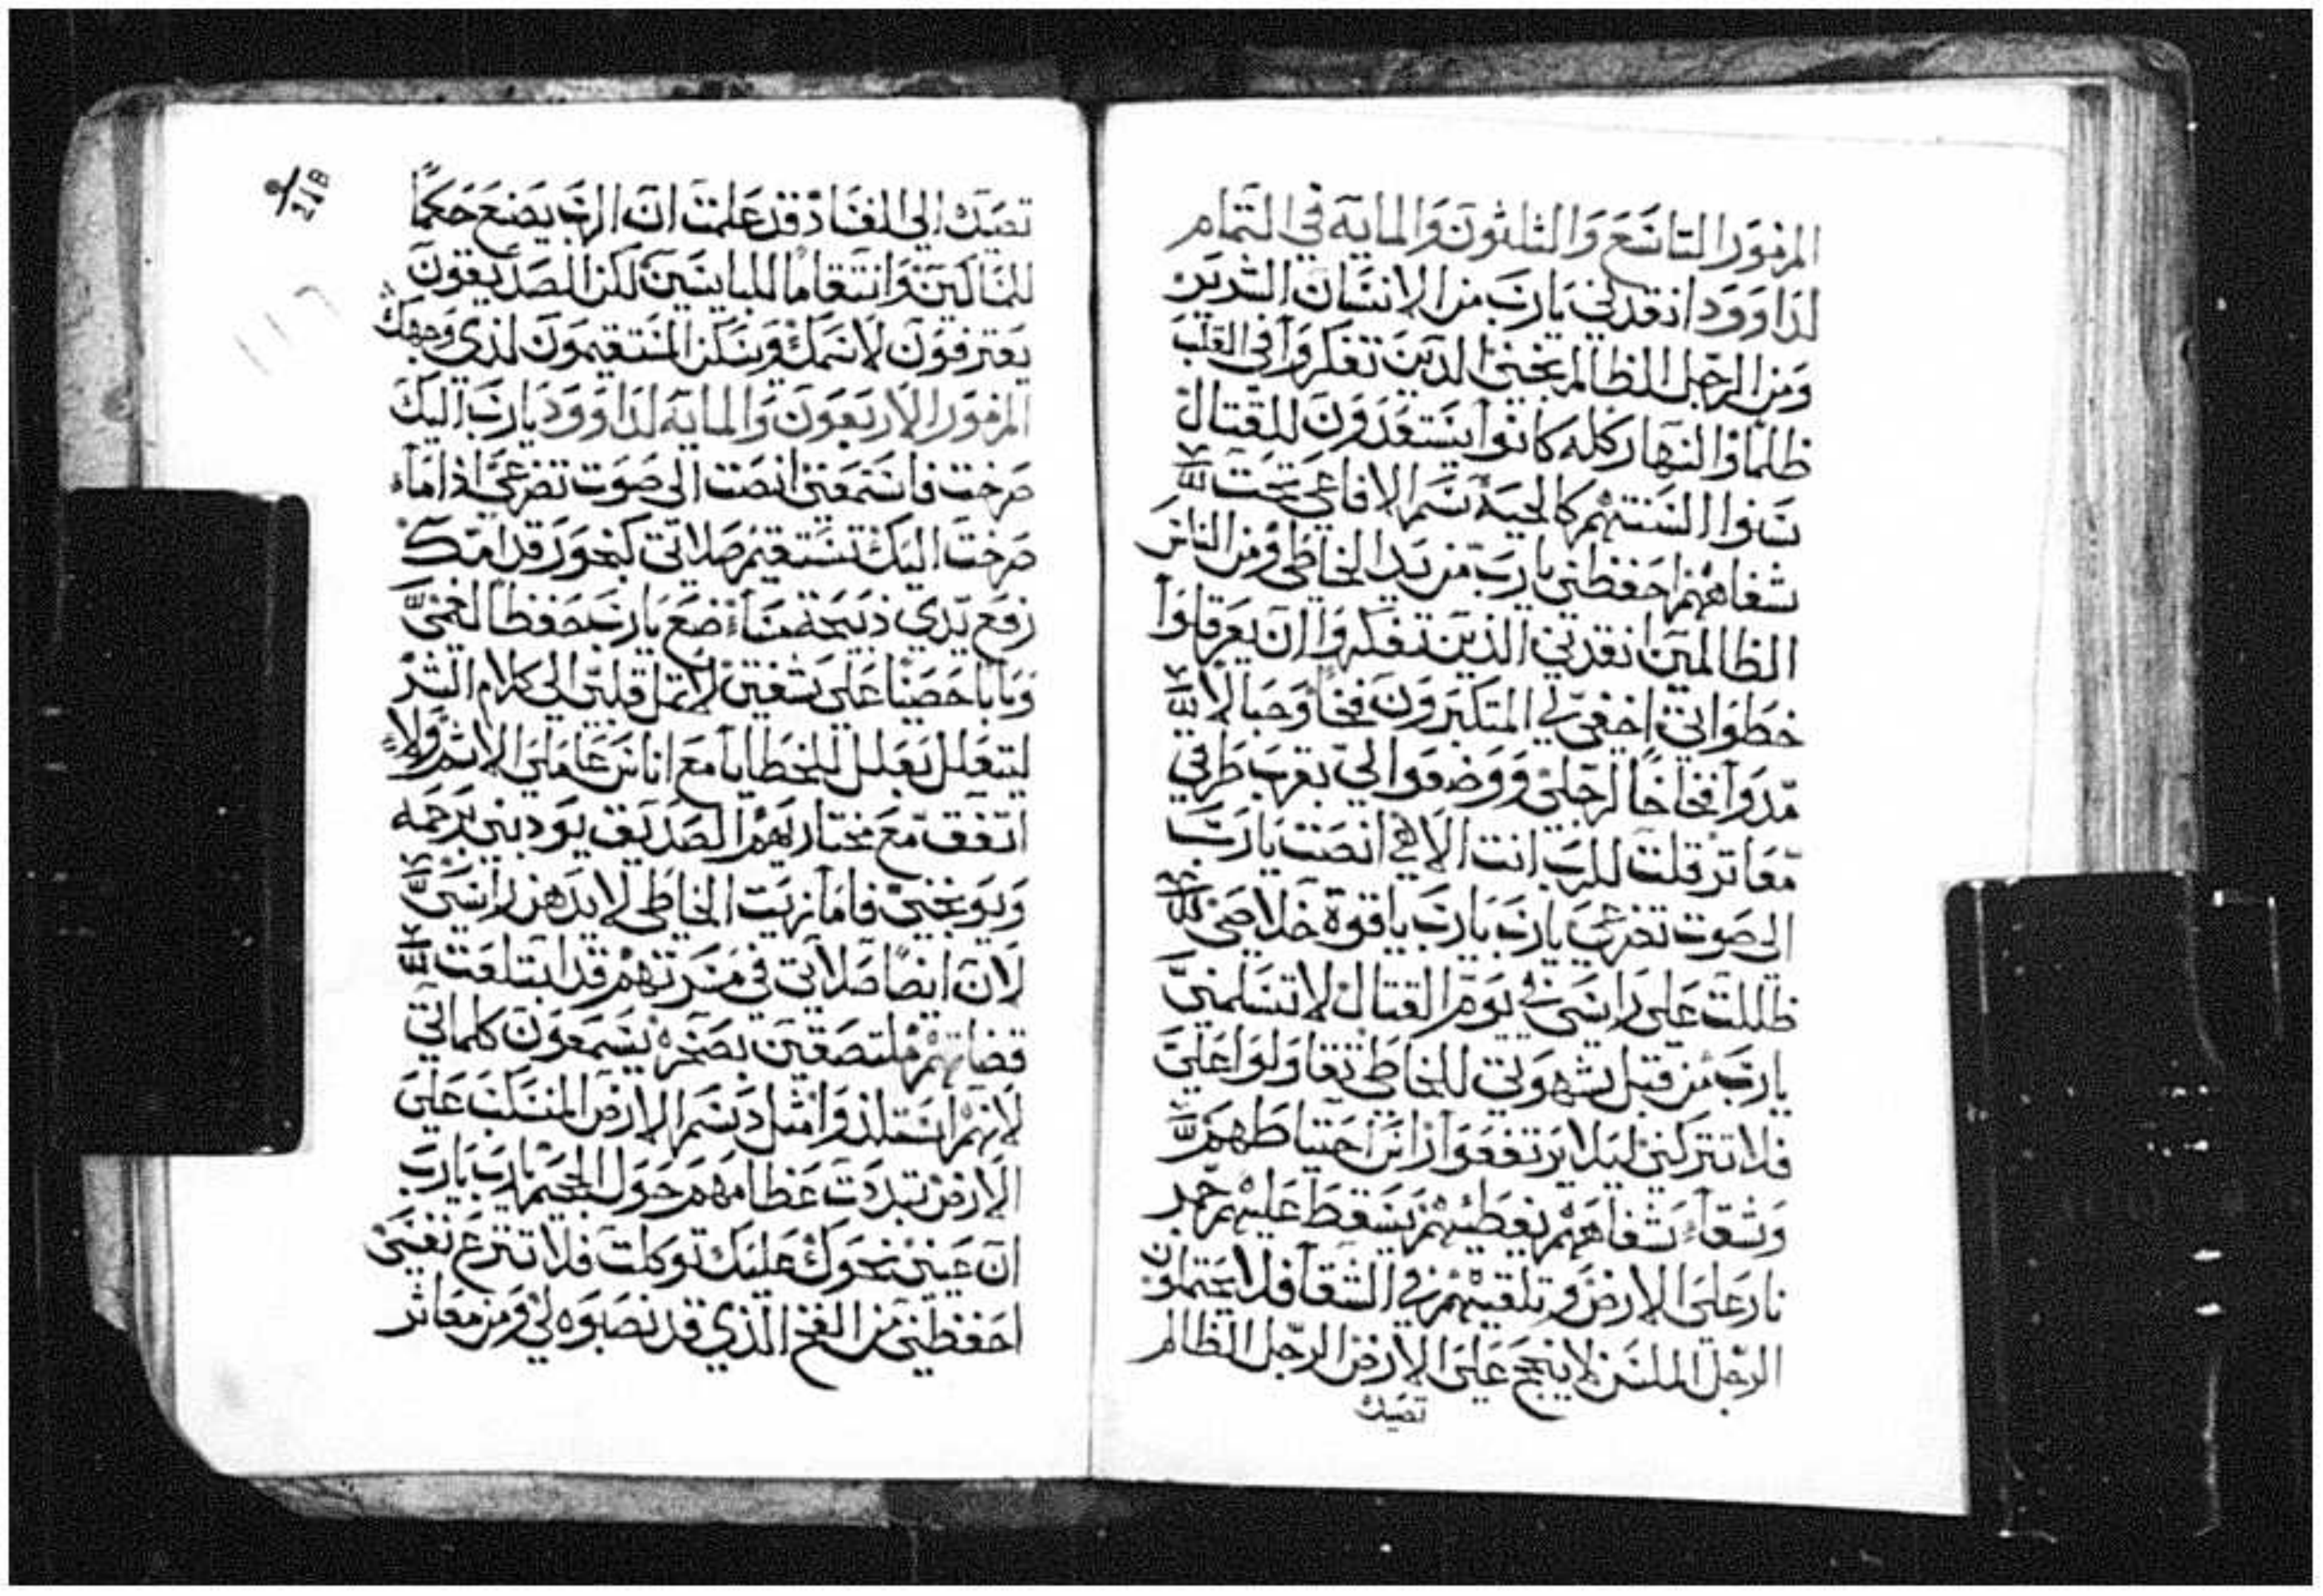 المزمور التاسع والثلثون والمايه في التمام
لداوود انقدني يارب من الانسان الشرير
ومن الرجل الظالم نجني الدين تفكروا في القلب
ظلمًا والنهار كله كانوا يستعدون للقتال
سنوا السنتهم كالحيه سم الافاعي تحت
شفاههم احفظني يارب من يد الخاطي ومن الناس
الظالمين انقدني الذين تفكروا ان يعرقلوا
خطواتي اخفي لي المتكبرون فخاً وحبالا
مدوا فخاخًا لرجلي ووضعوا لي بقرب طرقي
معاتر قلت للرب انت الاهي انصت يارب
الى صوت تضرعي يارب يارب ياقوة خلاصي
ظللت على راسي في يوم القتال لا تسلمني
يارب من قبل شهوتي للخاطي تفاولوا علي
فلا تتركني ليلا يرتفعوا راس احتياطهم
وشقاء شفاههم تغطيهم يسقط عليهم جمر
نار على الارض وتلقيهم في الشقا فلا يحتملون
الرجل الملسن لا ينجح على الارض الرجل الظالم
تصيدك
21B
تصيدك الي الفساد قد علمت ان الرب يصنع حكمًا
للمساكين وانتقامًا للبايسين لكن الصديقون
يعترفون لاسمك ويسكن المستقيمون لدى وجهك
المزمور الاربعون والمايه لداوود يارب اليك
صرخت فاستمعني انصت الى صوت تضرعي اذ اما
صرخت اليك تستقيم صلاتي كبخور قدامك
رفع يدي ذبيحة مساء ضع يارب حفظا لفمي
وبابا حصينا على شفتي لا تمل قلبي الى كلام الشر
ليتعلل بعلل للخطايا مع اناس عاملي الاثم ولا
اتفق مع مختاريهم الصديق يودبني برحمه
ويوبخني فاما زيت الخاطي لا يدهن راسي
لان ايضًا صلاتي في مسرتهم قد ابتلعت
قضاتهم ملتصقين بصخره يسمعون كلماتي
لانهم استلذوا مثل دسم الارض المنسكب على
الارض تبددت عظامهم حول الجحيم يارب يارب
ان عيني نحوك عليك توكلت فلا تنزع نفسي
احفظني من الفخ الذي قد نصبوه لي ومن معاثر